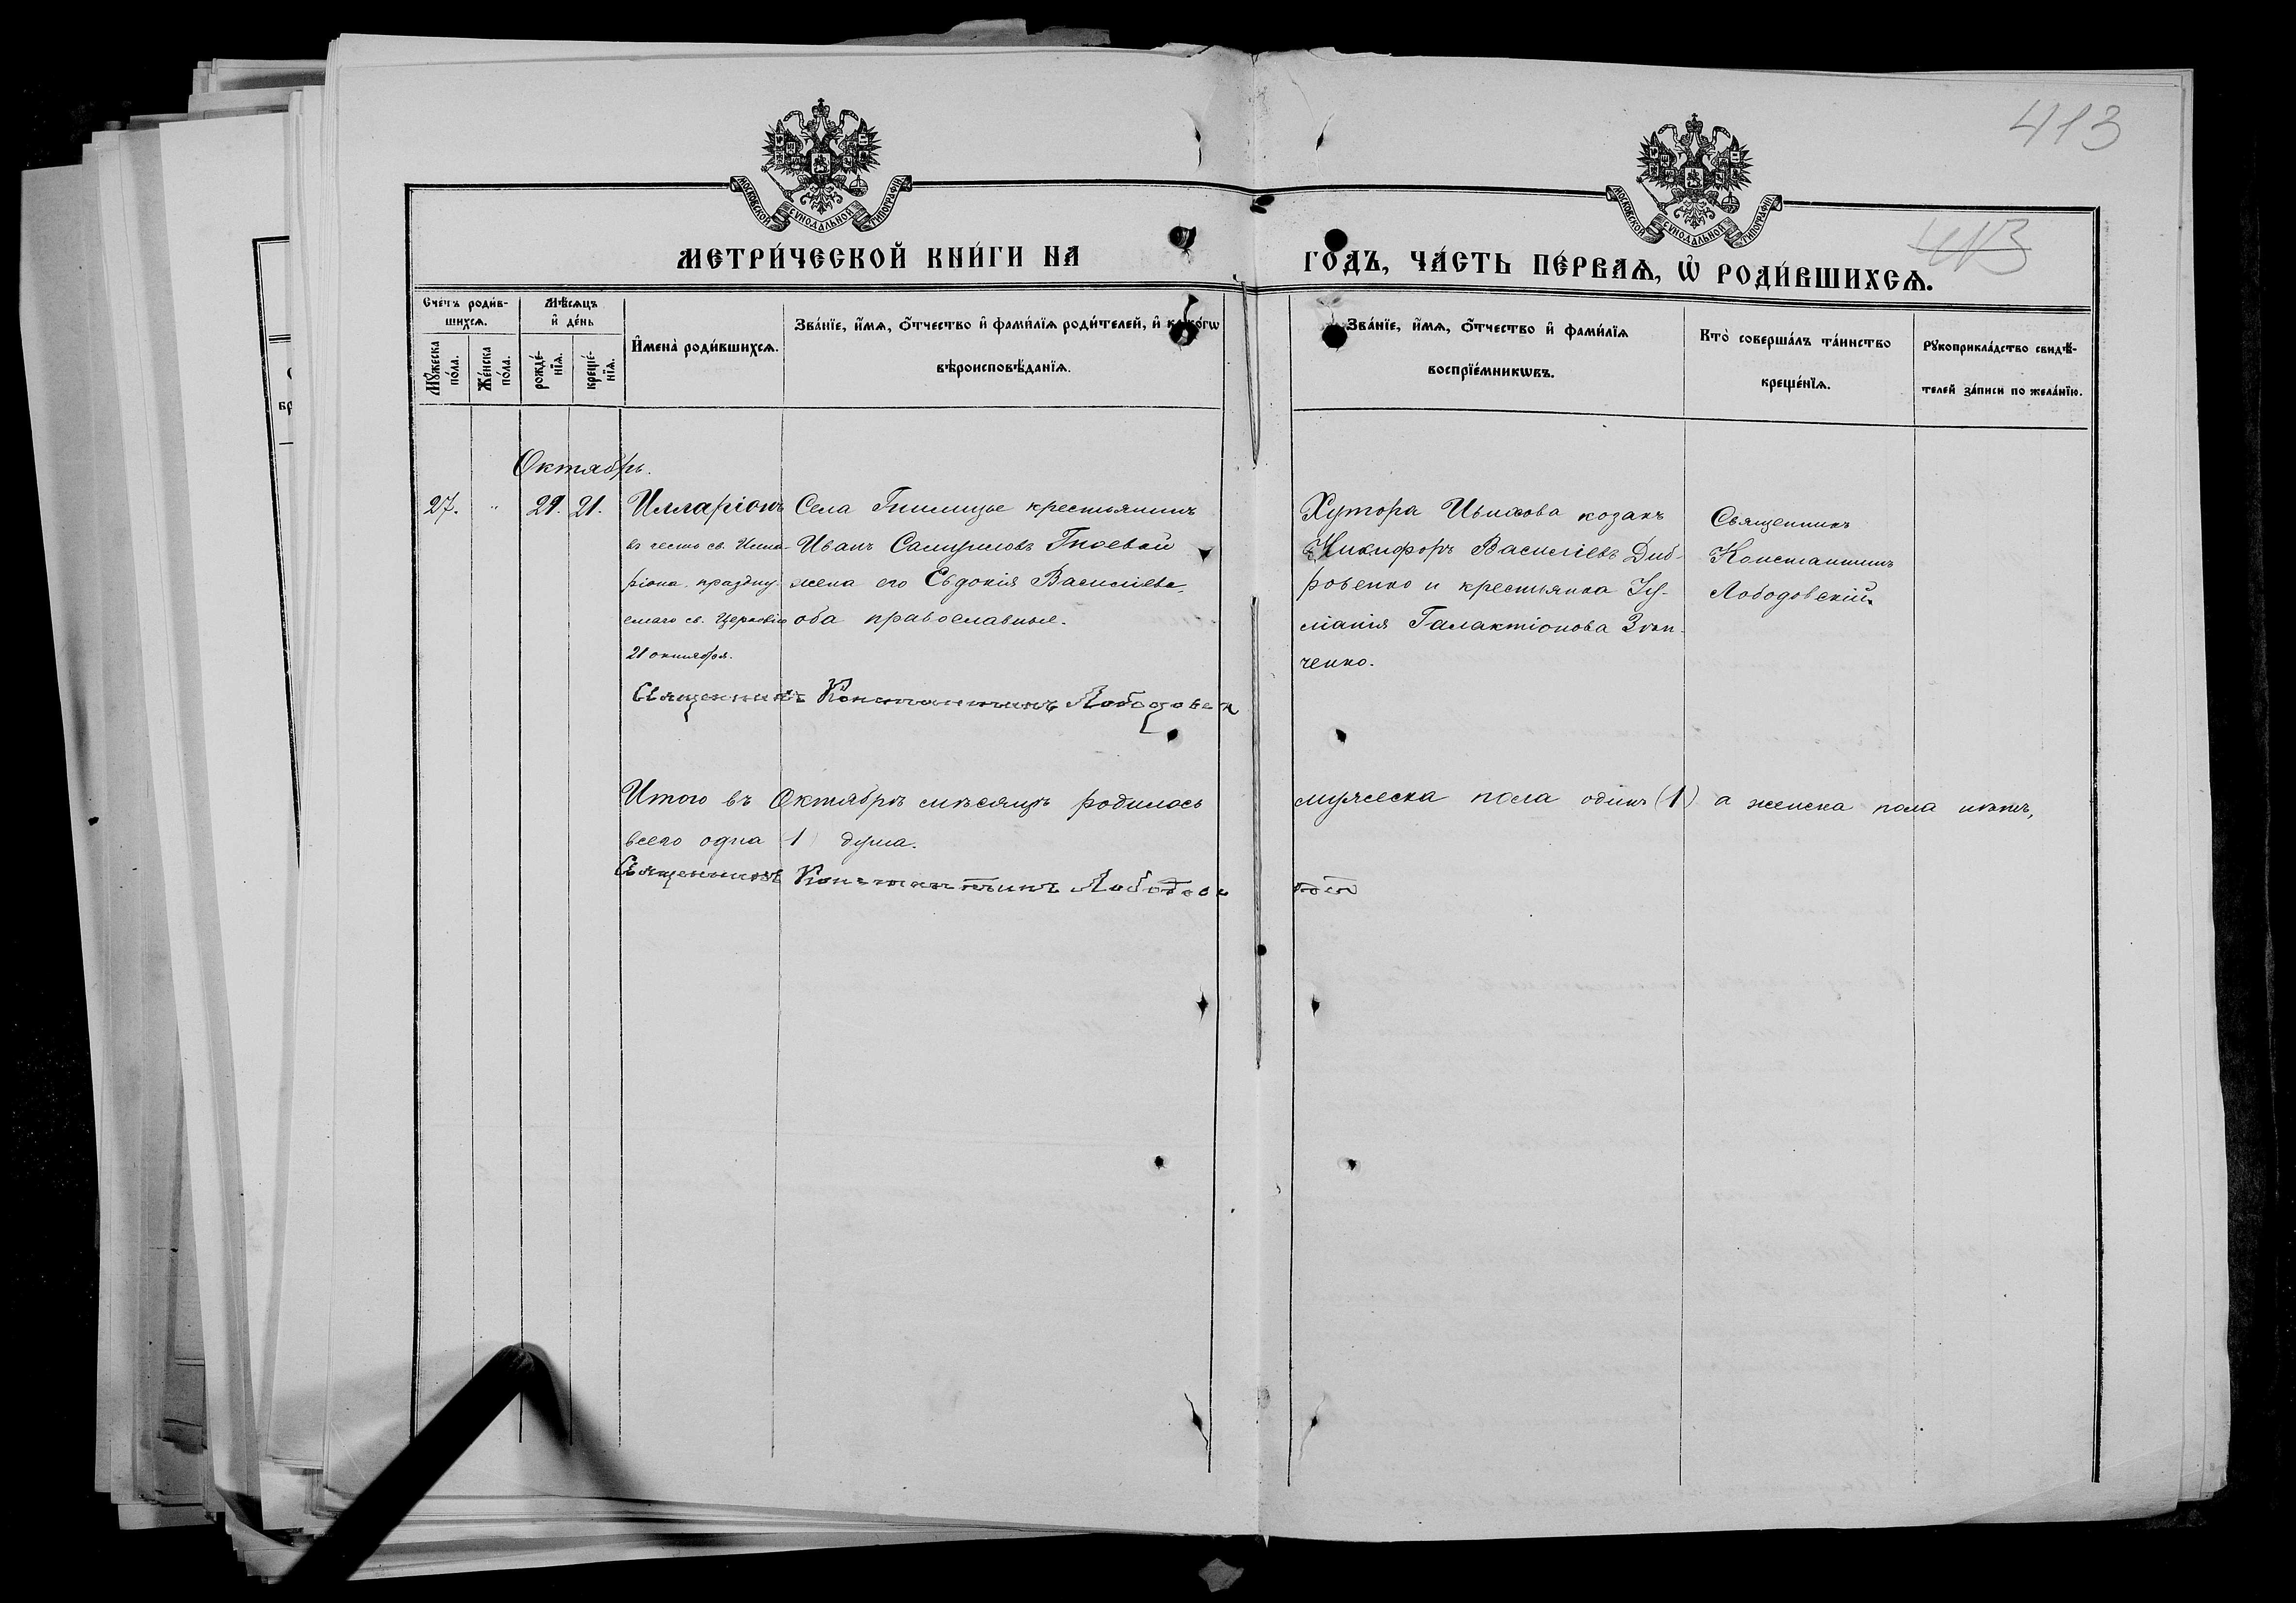 413
413
МОСКОВСКОЙ СѴНОДАЛЬНОЙ ТИПОГРАФІИ
МОСКОВСКОЙ СѴНОДАЛЬНОЙ ТИПОГРАФІИ
МЕТРИ́ЧЕСКОЙ КНИ́ГИ НА ГО́ДЪ, ЧА́СТЬ ПЕ́РВАѦ, Ѡ҆ РОДИ́ВШИХСѦ.
Сче́тъ роди́в-
шихсѧ.
Мꙋ́жеска по́ла.
Же́нска по́ла.
Мѣ́сѧцъ
и҆ де́нь
рожде́-
нїѧ.
креще́-
нїѧ.
И҆мена̀ роди́вшихсѧ.
Зва́нїе, и҆́мѧ, ѻ҆́тчество и҆ фами́лїѧ роди́телей, и҆ како́гѡ
вѣроисповѣ́данїѧ.
Зва́нїе, и҆́мѧ, ѻ҆́тчество и҆ фами́лїѧ
воспрїе́мникѡвъ.
Кто̀ соверша́лъ та́инство
креще́нїѧ.
Рꙋкоприкла́дство свидѣ́-
телей за́писи по жела́нїю.
Октябрь.
27. " 21. 21. Илларіонъ
въ честь св. Илла-
ріона праздну-
емаго св. Церковію
21 октября.
Села Гнилицы крестьянинъ
Иванъ Самуиловъ Гноевой
жена его Евдокія Васильева,
оба православные.
Хутора Ивахова козакъ
Никифоръ Васильевъ Диб-
ровенко и крестьянка Іу-
ліанія Галактіонова
ченко.
Священникъ
Константинъ
Лободовскій.
Священникъ Константинъ Лободовск
Итого въ Октябрѣ мѣсяцѣ родилось мужеска пола одинъ (1) а женска пола нѣтъ,
всего одна (1) душа.
Священникъ Константинъ Лободовс